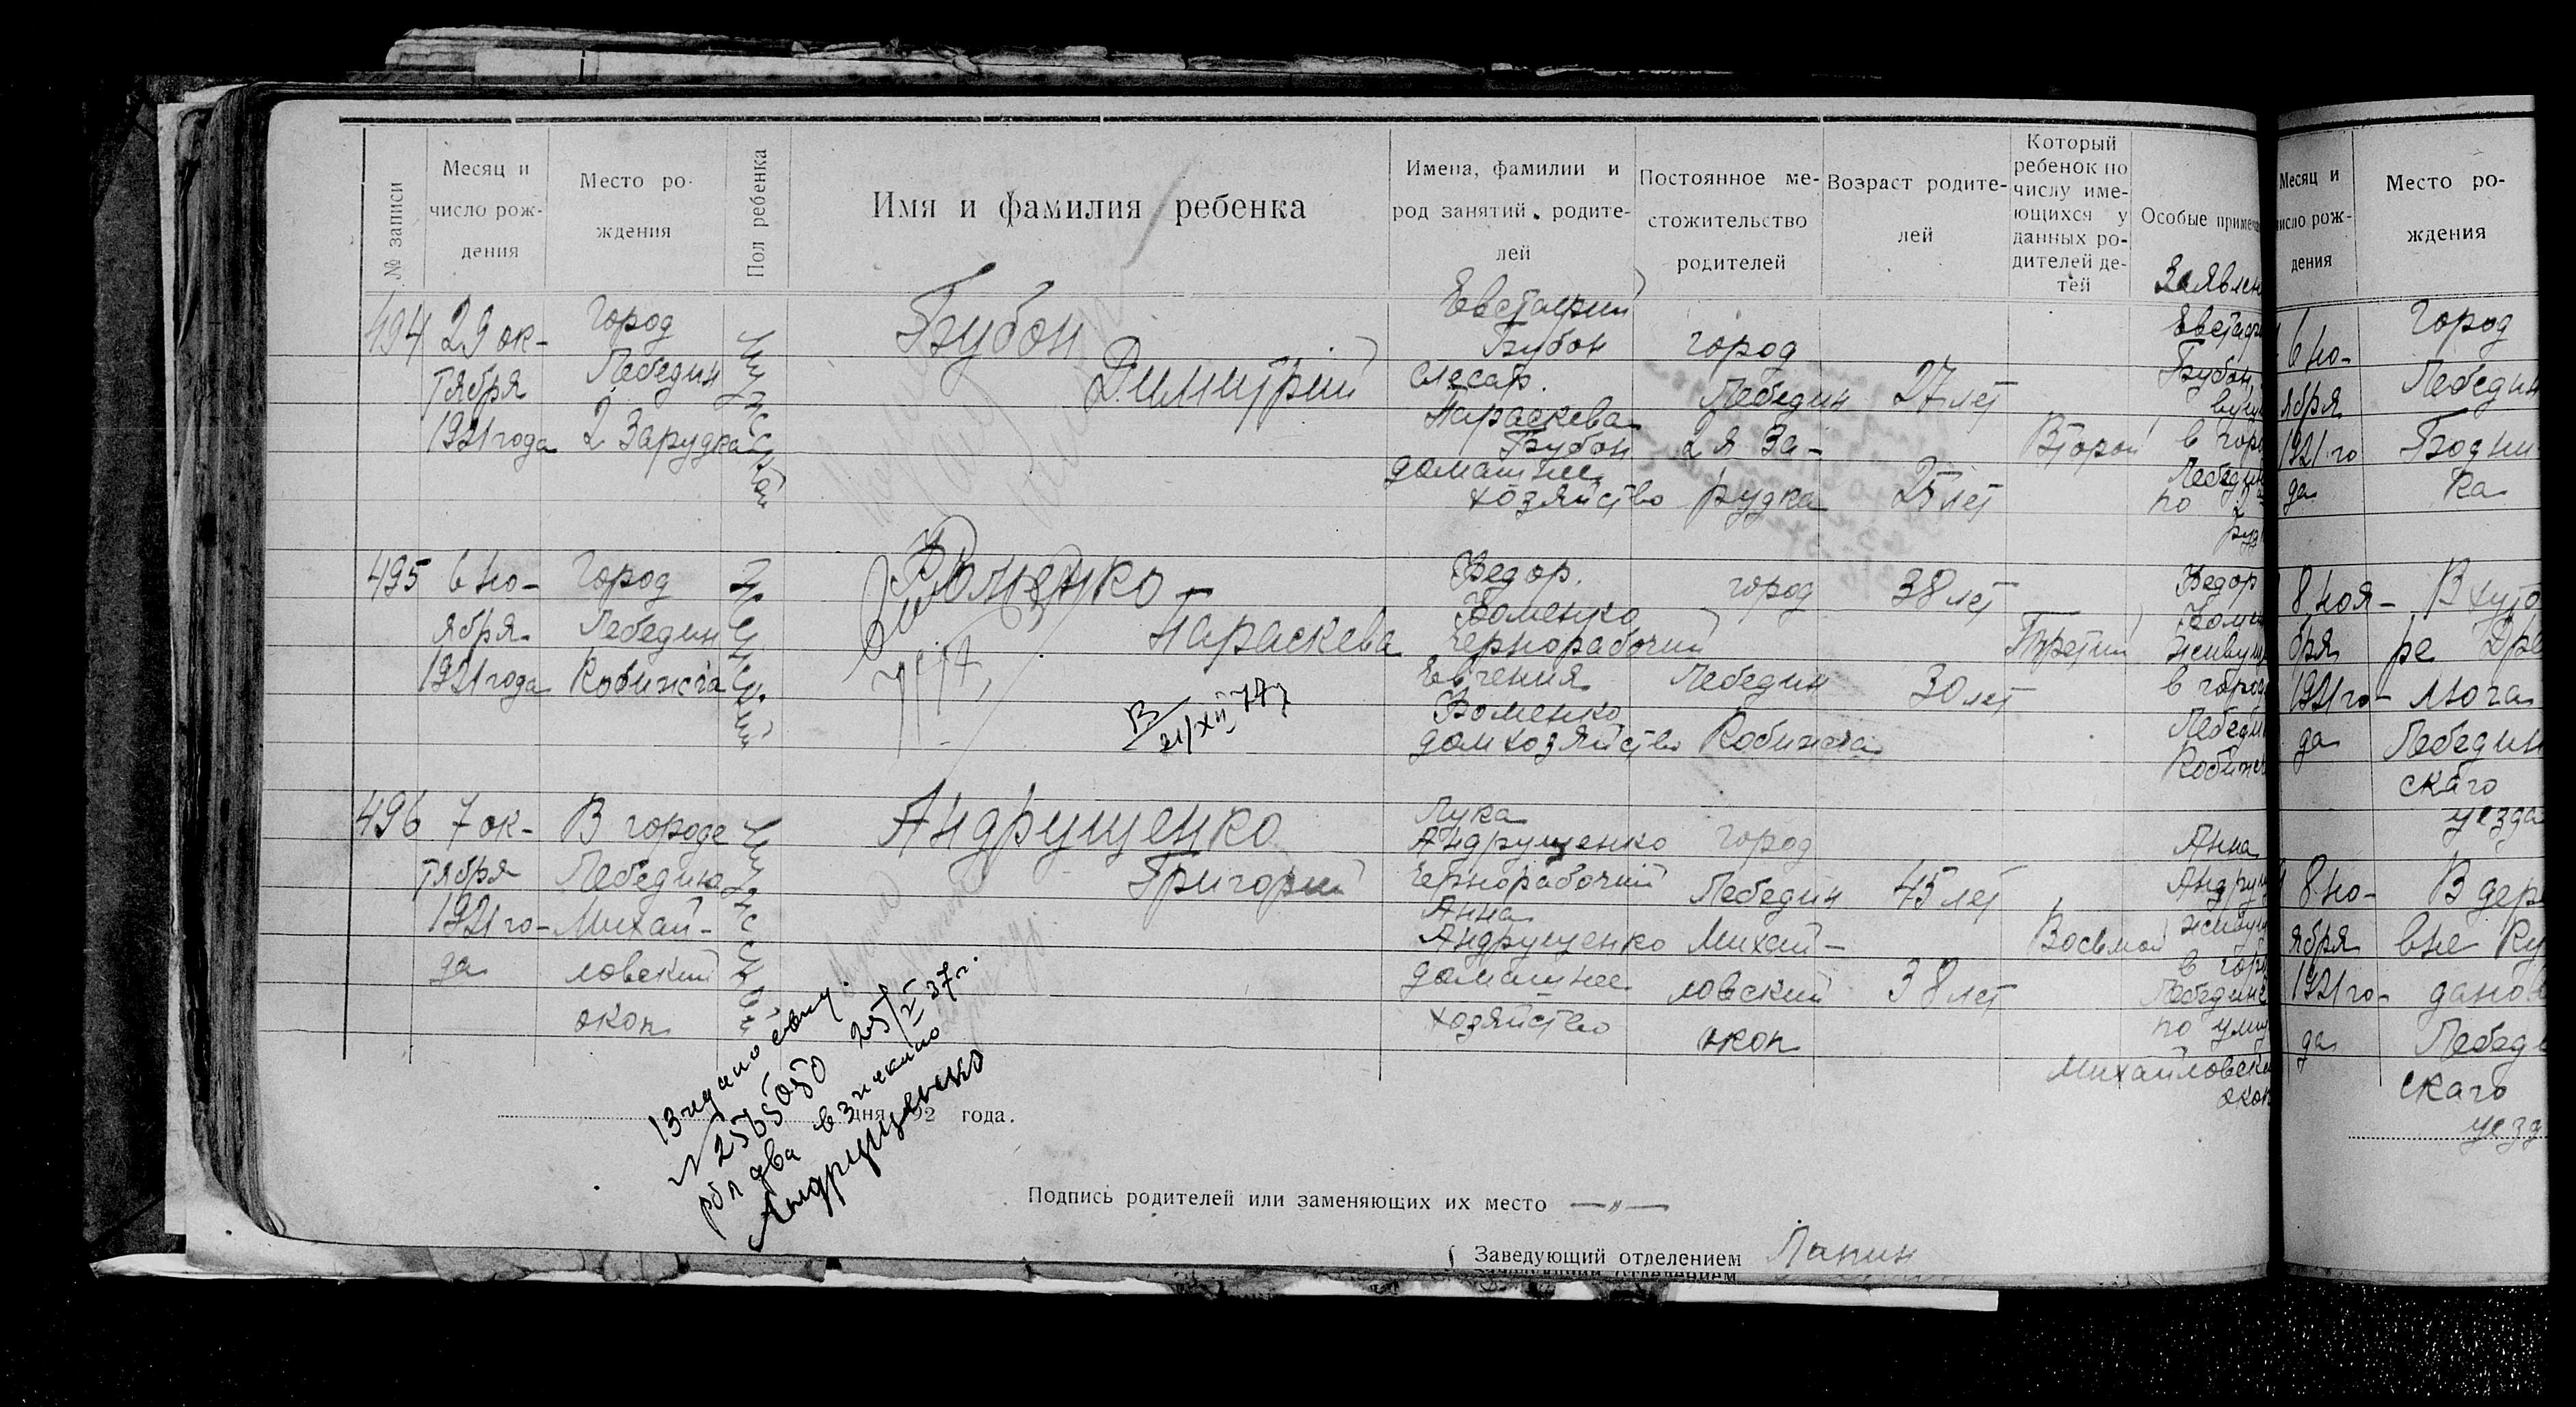 № записи
Месяц и
число рож-
дения
Место ро-
ждения
Пол ребенка
Имя и фамилия ребенка
Имена, фамилии и
род занятий родите-
лей
Постоянное ме-
стожительство
родителей
Возраст родите-
лей
Который
ребенок по
числу име-
ющихся у
данных ро-
дителей де-
тей
Особые примеча
Заявлен
494
29 ок-
тября
1921 года
город
Лебедин
2 Зарудка
Мужской
Бубон
Димитрий
Евстафий
Бубон
слесар.
Параскева
Бубон
домашнее
хозяйство
город
Лебедин
2 я За-
рудка
27 лет
25 лет
Второй
Бубон
в горо
Лебедин
по 2
495
6 но-
ября
1921 года
Город
Лебедин
Кобижга
Женский
Фоменко
Параскева
21/XII 77
Федор.
Фоменко
Чернорабочий
Евгения
Фоменко
дом хозяйство
город
Лебедин
Кобижга
38 лет
30 лет
Третий
Федор
Фоме
живущ
в город
Лебеди
Кобижг
496
7 ок-
тября
1921 го-
да
В городе
Лебедине
Михай-
ловский
окоп
Мужской
Андрущенко
Григорий
Лука
Андрущенко
Чернорабочий
Анна
Андрущенко
домашнее
хозяйство
город
Лебедин
Михай-
ловский
окоп
45 лет
38 лет
Восьмой
Анна
Андрущ
живущ
в горо
Лебедине
по улиц
Михайловски
окоп
2565050 25/V 37 г.
Андрущенко
дня 92 года.
Подпись родителей или заменяющих их место — „ —
Заведующий отделением Лапин
Месяц и
число рож-
дения
Место ро-
ждения
6 но-
ября
1921 го
да
Город
Лебедин
8 ноя-
бря
1921 го-
да
В хуто
ре
Лебедин
скаго
уезда
8 но-
ября
1921 го-
да
В дер
вне Ку
данов
Лебед
скаго
уезд